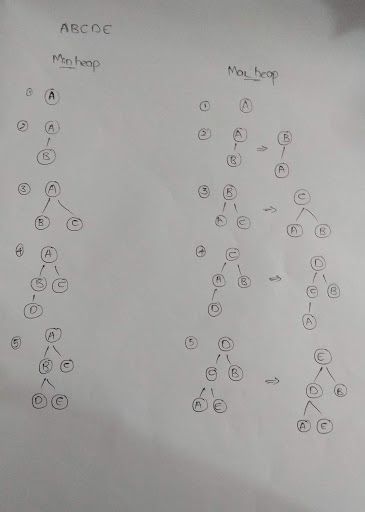 ABCDE
Min heap
1 A
2 A
B
3 A
B C
4 A
B C
D
5 A
B C
D E
Max heap
1 A
2 A ⇒ B
B A
3 B ⇒ C
A C A B
4 C ⇒ D
A B C B
D A
5 D ⇒ E
C B D B
A E A E